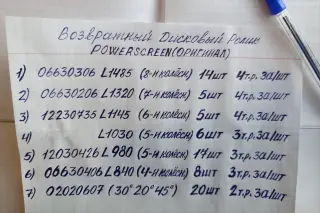 Возвратный Дисковый Ролик
POWERSCREEN(ОРИГИНАЛ)
1) 06630306 L1485 (8-и колёсн) 14шт 4т.р. за/шт
2) 06630206 L1320 (7-и колёсн) 5шт 4т.р. за/шт
3) 12230735 L1145 (6-и колёсн) 5шт 4т.р. за/шт
4) L1030 (5-и колёсн) 6шт 3т.р. за/шт
5) 12030426 L980 (5-и колёсн) 17шт 3т.р. за/шт
6) 06630406 L840 (4-и колёсн) 8шт 3т.р. за/шт
7) 02020607 (30° 20° 45°) 20шт 2т.р. за/шт